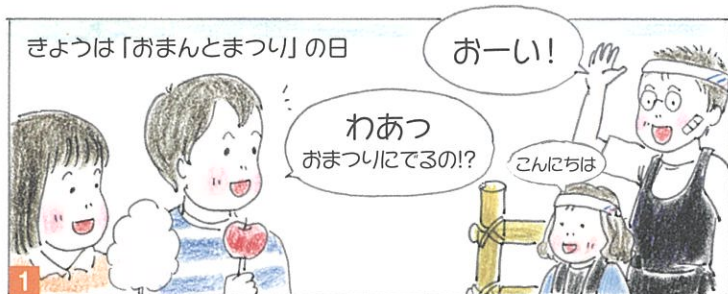 きょうは「おまんとまつり」の日
おーい！
わあっ
おまつりにでるの!?
こんにちは
1